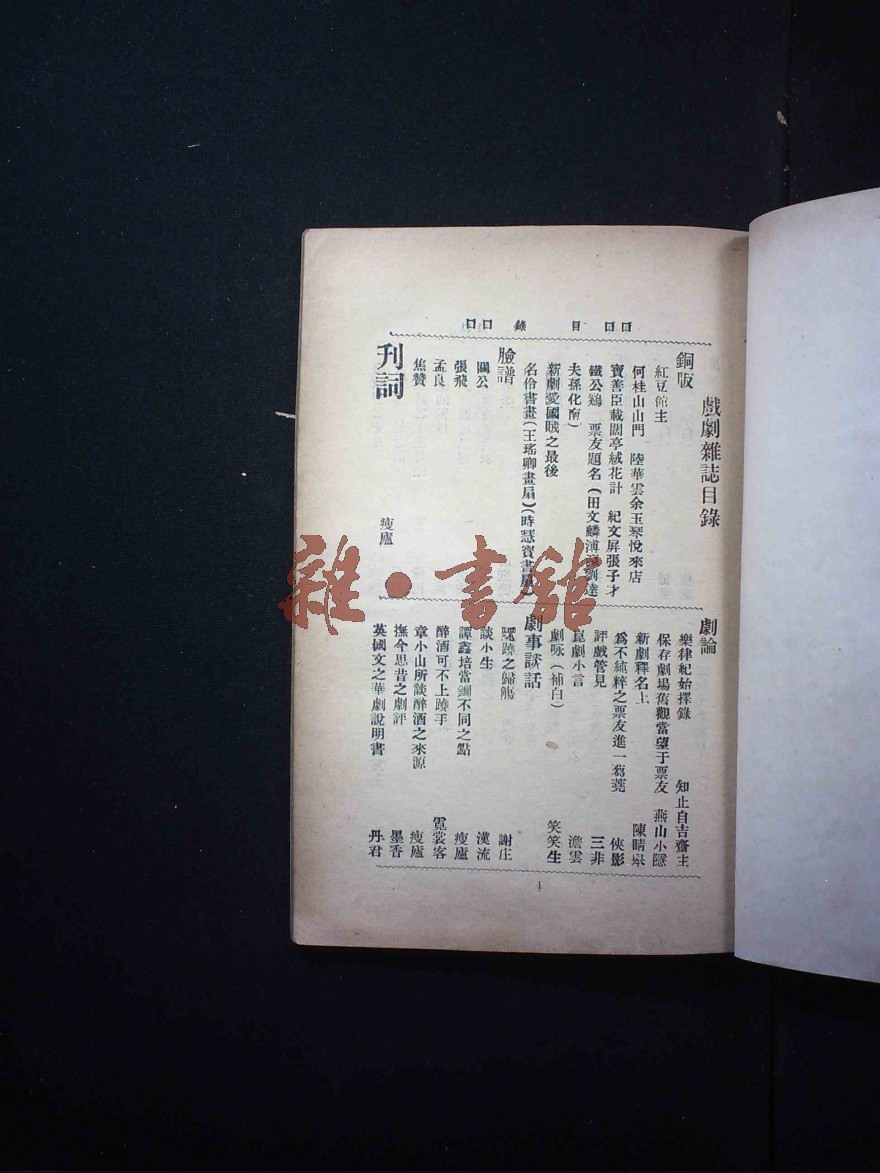 口口 錄 目 口口
戲劇雜誌目錄
銅版
紅豆館主
何桂山山門 陸華雲余玉琴悅來店
寶善臣載闊亭絨花計 紀文屏張子才
鐵公鷄 票友題名(田文麟溥 劉達
夫孫化南)
新劇愛國賊之最後
名伶書畫(王瑤卿畫扇)(時慧寶書扇)
臉譜
關公
張飛
孟良
焦贊
刋詞 瘦廬
劇論
樂律紀始擇錄 知止自吉齋主
保存劇場舊觀當望于票友 燕山小隱
新劇釋名上 陳晴
爲不純粹之票友進一芻蕘 俠影
評戲管見 三非
崑劇小言 澹雲
劇咏(補白) 笑笑生
劇事談話
躧蹺之歸觴 謝庄
談小生 漢流
譚鑫培當鐧不同之點 瘦廬
醉酒可不上蹺乎 霓裳客
章小山所談醉酒之來源 瘦廬
撫今思昔之劇評 墨香
英國文之華劇說明書 丹君
1
雜·書館